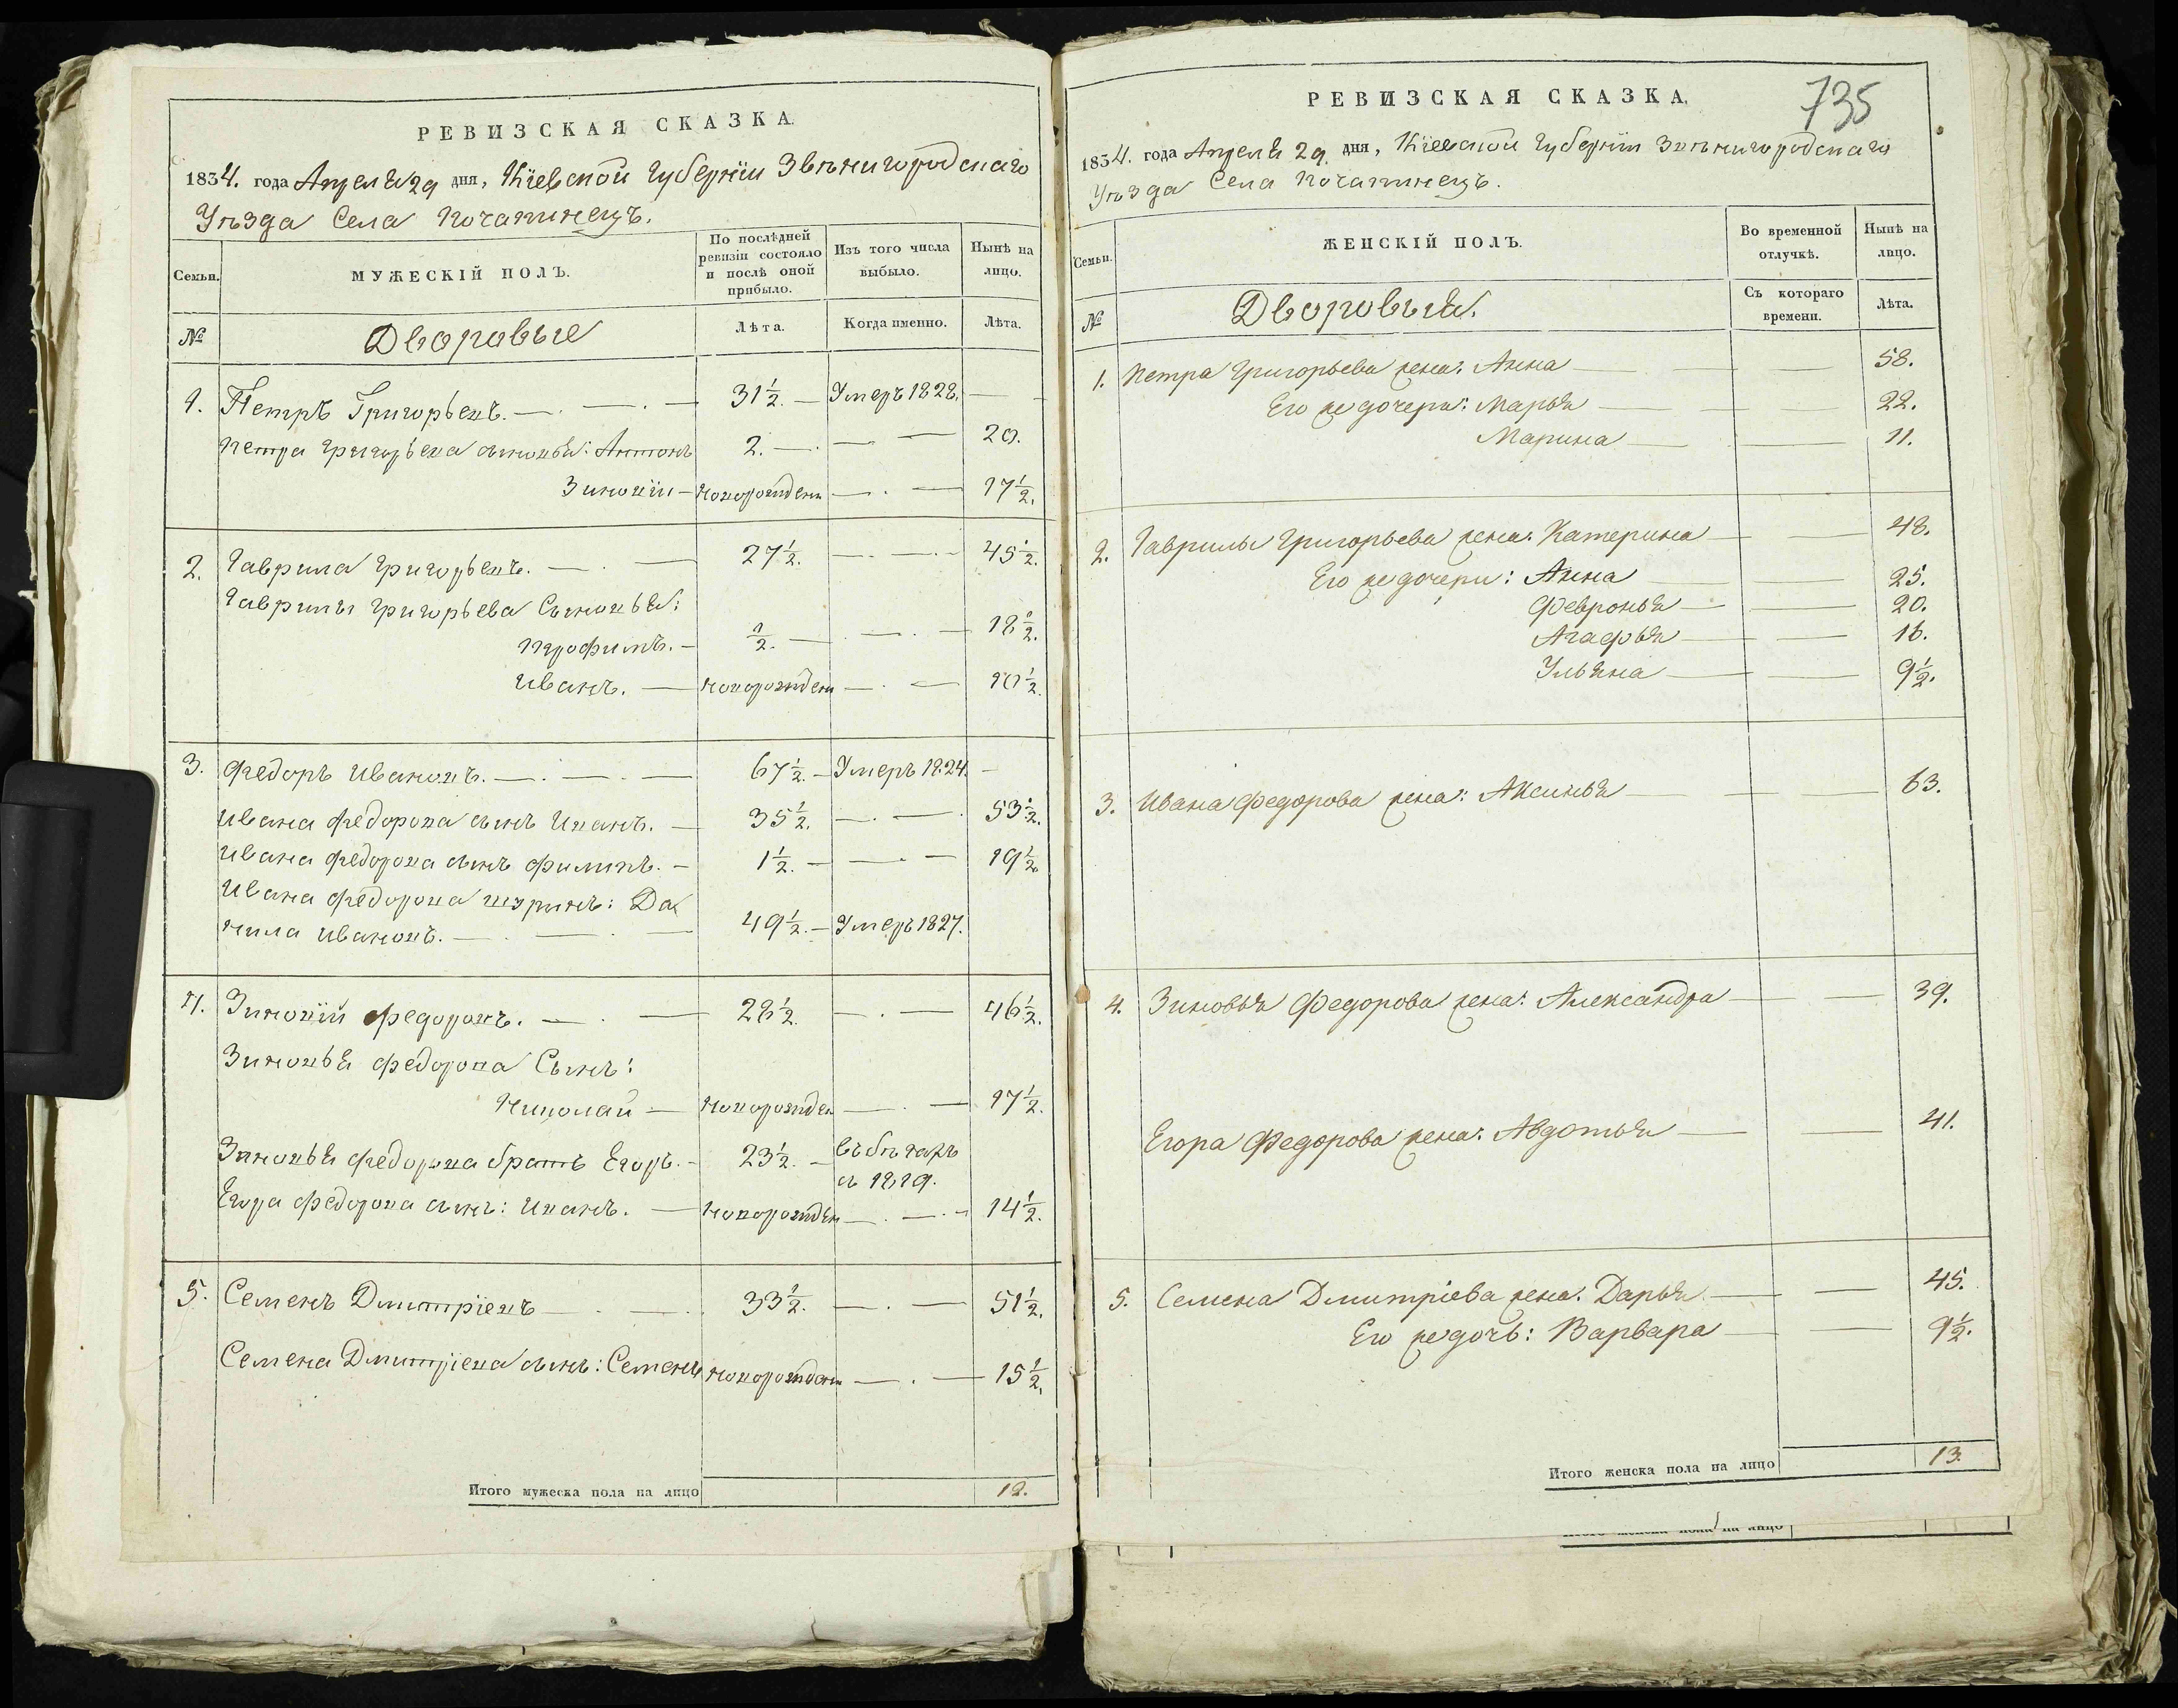 РЕВИЗСКАЯ СКАЗКА.
1834. года Апреля 29 дня, Кіевской Губерніи Звѣнигородскаго
Уѣзда Села Почапинецъ.
Семьи.
МУЖЕСКІЙ ПОЛЪ.
По послѣдней ревизіи состояло и послѣ оной прибыло.
Изъ того числа выбыло.
Нынѣ на лицо.
№
Дворовые
Лѣта.
Когда именно.
Лѣта.
1. Петръ Григорьевъ. 31 1/2. Умеръ 1828.
Петра Григорьева сыновья: Антонъ 2. 20.
Зиновіи новорожденъ 17 1/2.
2. Гаврила Григорьевъ. 27 1/2. 45 1/2.
Гаврилы Григорьева Сыновья:
Трофимъ. 1/2. 18 1/2.
Иванъ. новорожден 10 1/2.
3. Федоръ Ивановъ. 67 1/2. Умеръ 1824.
Ивана Федорова сынъ Иванъ. 35 1/2. 53 1/2.
Ивана Федорова сынъ Филипъ. 1 1/2. 19 1/2.
Ивана Федорова шуринъ: Да
нила Ивановъ. 49 1/2. Умеръ 1827.
4. Зиновій Федоровъ. 28 1/2. 46 1/2.
Зиновья Федорова Сынъ:
Николай новорожден 17 1/2.
Зиновья Федорова братъ Егоръ. 23 1/2. въ бѣгахъ
съ 1819.
Егора Федорова сынъ: Иванъ. новорожден 14 1/2.
5. Семенъ Дмитріевъ 33 1/2. 51 1/2.
Семена Дмитріева сынъ: Семенъ новорожден 15 1/2.
Итого мужеска пола на лицо 12.
735
РЕВИЗСКАЯ СКАЗКА.
1834. года Апреля 29. дня, Кіевской Губерніи Звѣнигородскаго
Уѣзда Села Почапинецъ.
Семьи.
ЖЕНСКІЙ ПОЛЪ.
Во временной отлучкѣ.
Нынѣ на лицо.
№
Дворовыя.
Съ котораго времени.
Лѣта.
1. Петра Григорьева жена: Анна 58.
Его же дочери: Марья 22.
Марина 11.
2. Гаврилы Григорьева жена: Катерина 48.
Его же дочери: Анна 25.
Февронья 20.
Агафья 16.
Ульяна 9 1/2.
3. Ивана Федорова жена: Аксинья 63.
4. Зиновья Федорова жена: Александра 39.
Егора Федорова жена: Авдотья 41.
5. Семена Дмитріева жена: Дарья 45.
Его же дочь: Варвара 9 1/2.
Итого женска пола на лицо 13.